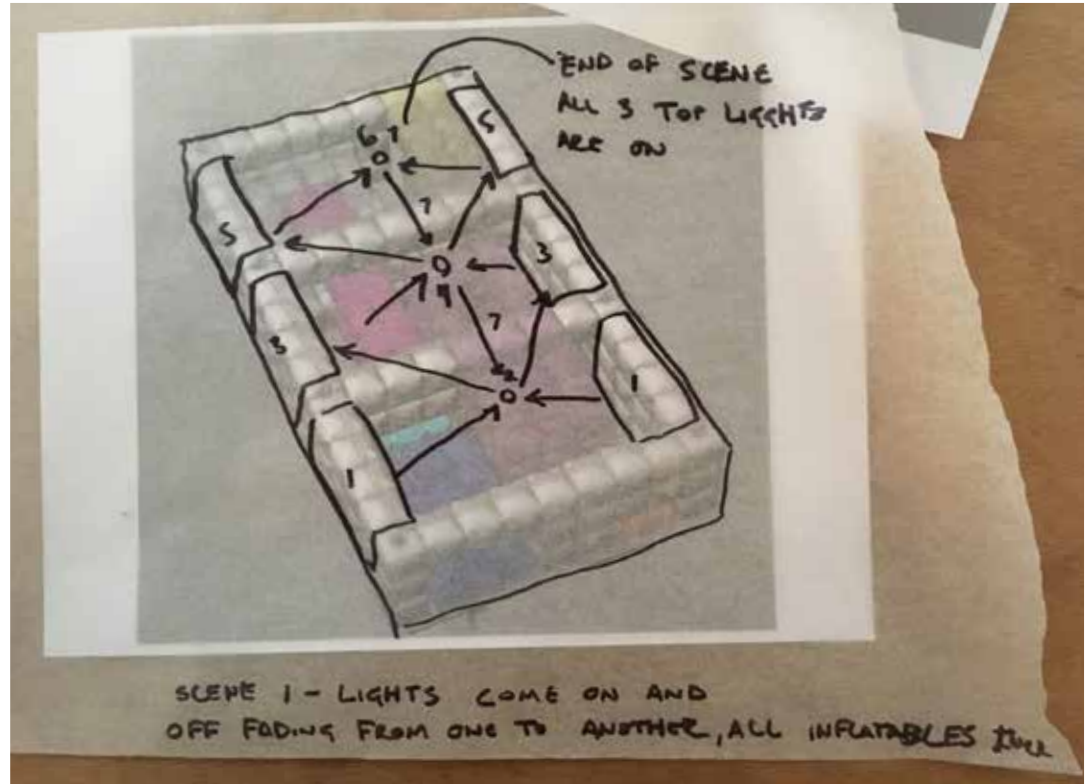 END OF SCENE
ALL 3 TOP LIGGHTS
ARE ON
5
6 7
5
7
3
4
3
7
2
1
1
SCENE 1 - LIGHTS COME ON AND
OFF FADING FROM ONE TO ANOTHER, ALL INFLATABLES